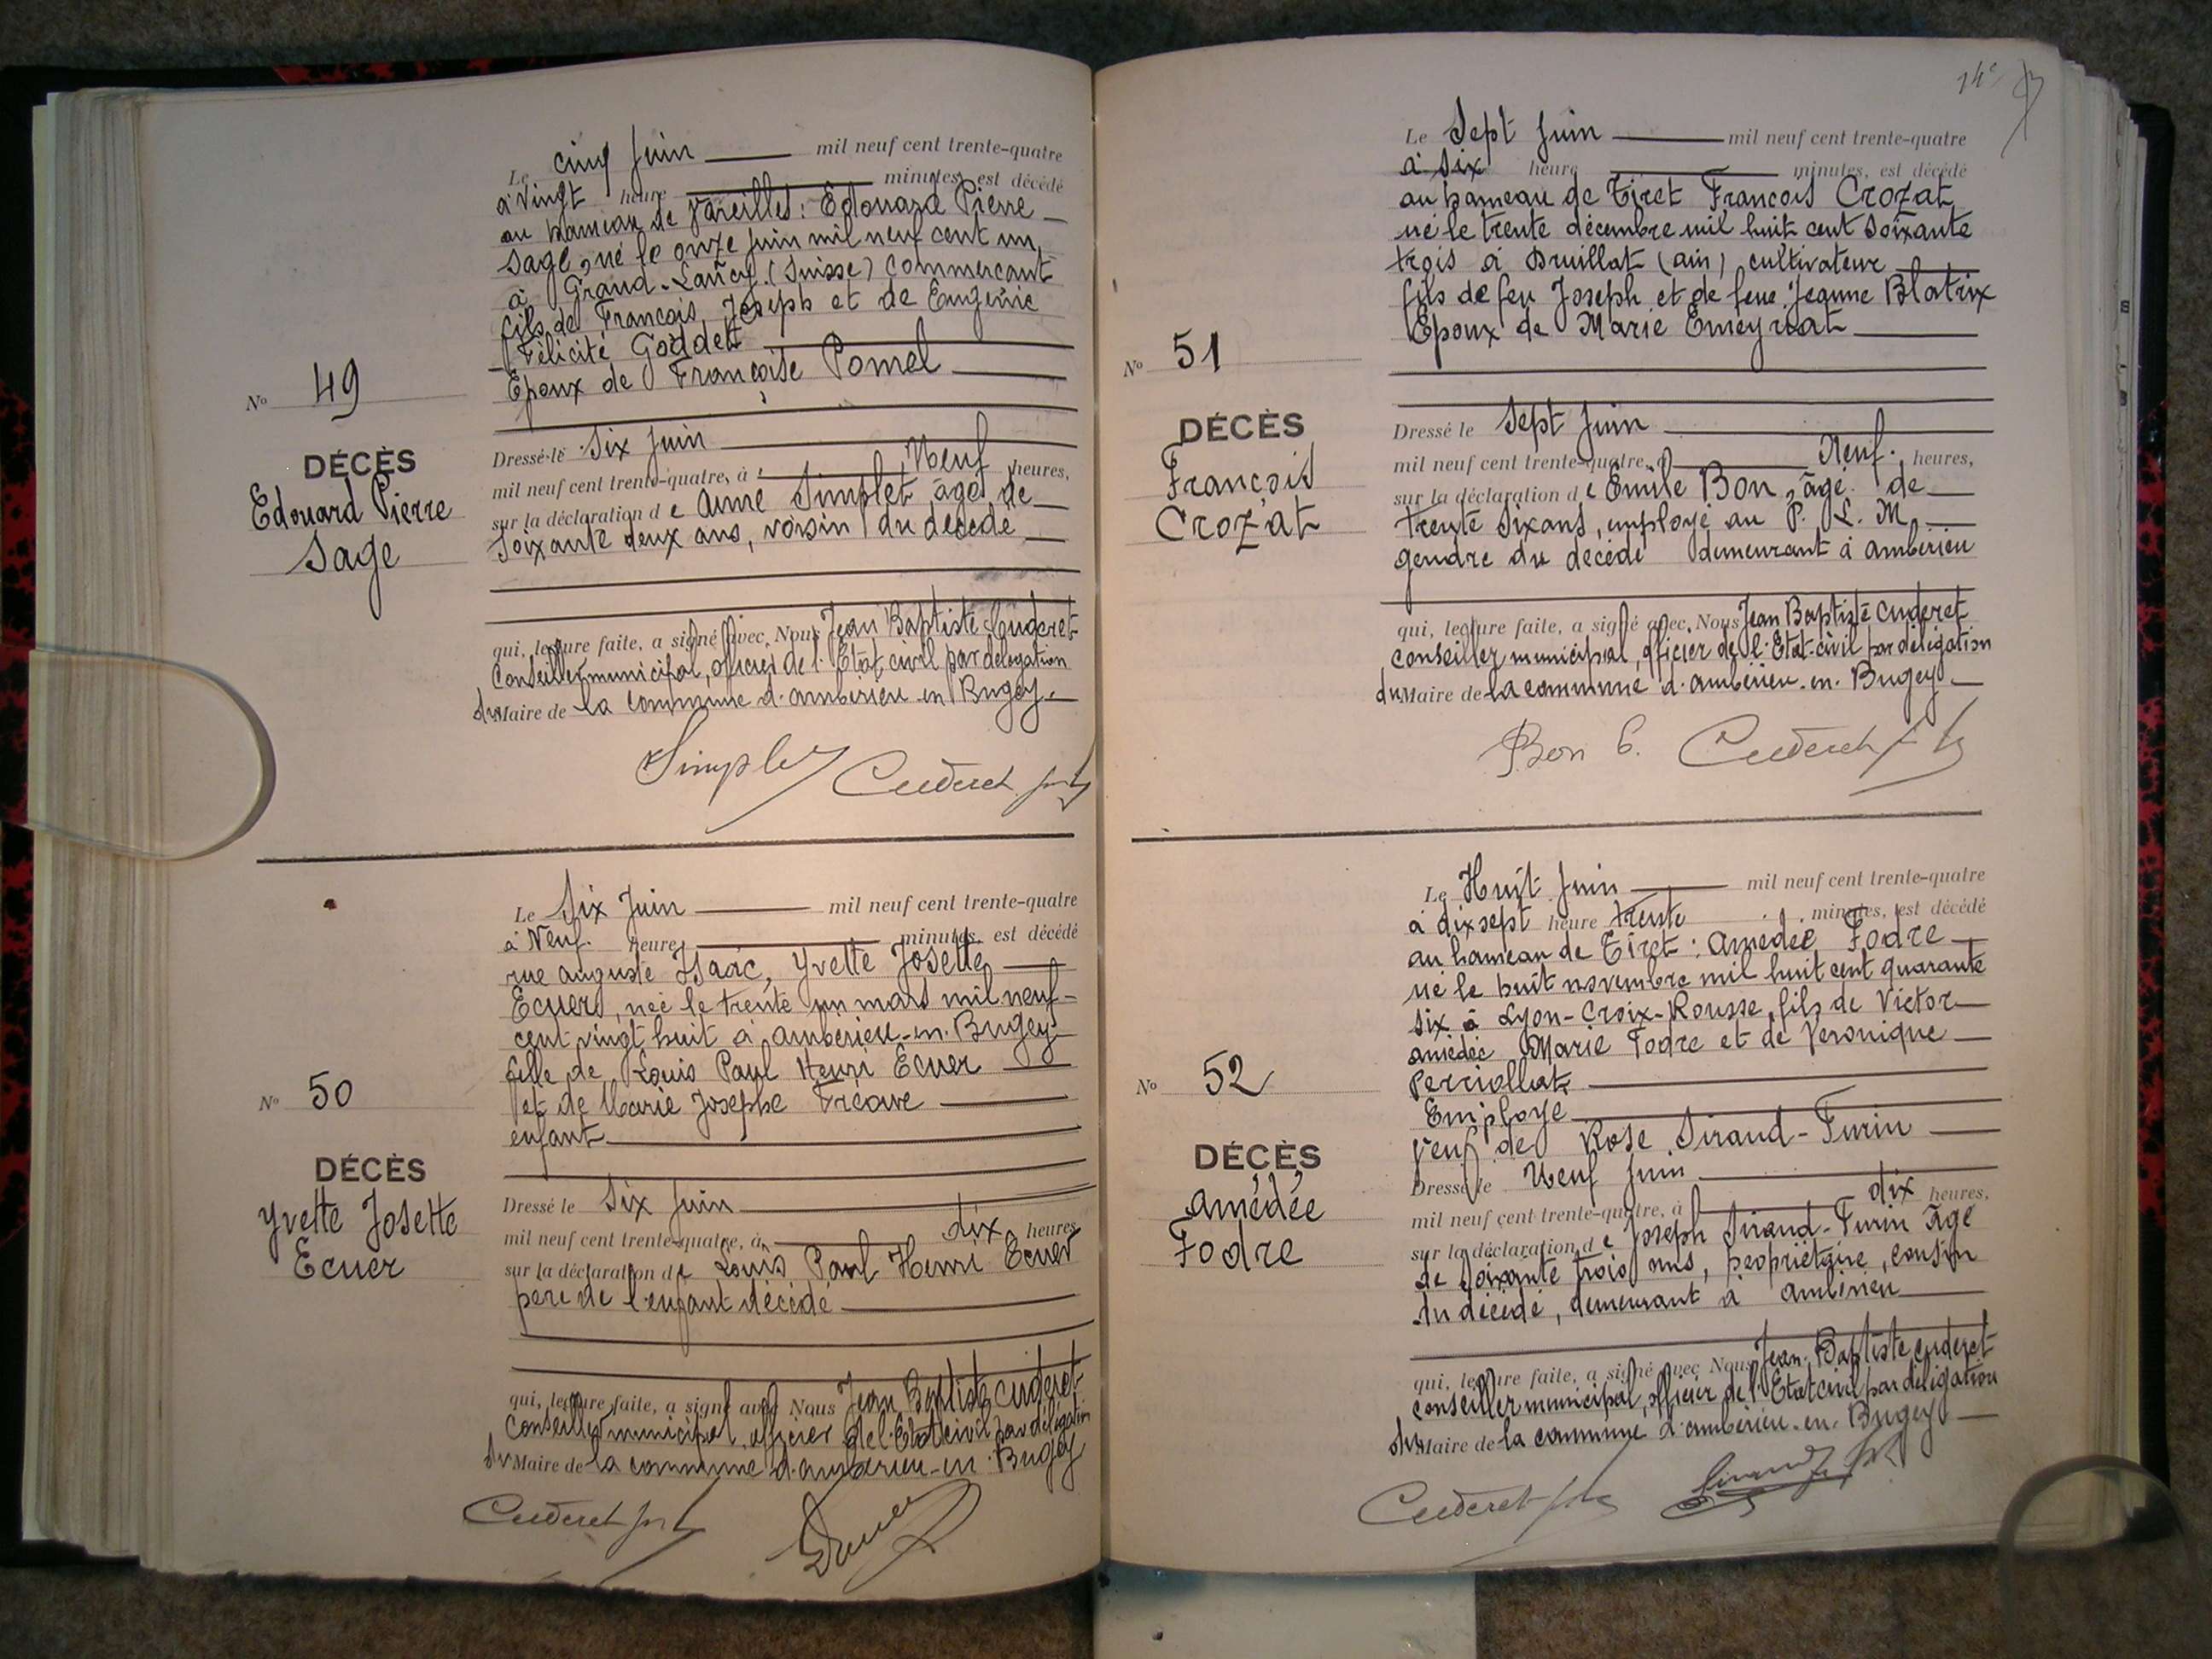 Le cinq Juin mil neuf cent trente-quatre
à Vingt heure minutes, est décédé
au hameau de Vareilles: Edouard Pierre
Sage, né le onze Juin mil neuf cent un,
à Grand-Lancy (Suisse) Commercant
fils de Francois Joseph et de Eugénie
Félicité Goddet
Epoux de Françoise Pomel
No 49
DÉCÈS
Edouard Pierre
Sage
Dressé le Six Juin
mil neuf cent trente-quatre, à Neuf heures,
sur la déclaration de Aimé Simplet âgé de
Soixante deux ans, voisin du décédé
qui, lecture faite, a signé avec Nous Jean Baptiste Cuderet
Conseiller municipal, officier de l'Etat civil par délégation
du Maire de la commune d'ambérieu-en Bugey.
Simplet Cuderet
Le Six Juin mil neuf cent trente-quatre
à Neuf heure minutes, est décédé
rue auguste Isaac, Yvette Josette
Ecuer, née le trente un mars mil neuf-
cent vingt huit à ambérieu-en-Bugey
fille de Louis Paul Henri Ecuer
et de Marie Josephe Fréave
enfant
No 50
DÉCÈS
Yvette Josette
Ecuer
Dressé le Six Juin
mil neuf cent trente-quatre, à dix heures
sur la déclaration de Louis Paul Henri Ecuer
père de l'enfant décédé
qui, lecture faite, a signé avec Nous Jean Baptiste Cuderet
Conseiller municipal, officier de l'Etat civil par délégation
du Maire de la commune d'ambérieu-en-Bugey
Cuderet Ecuer
Le Sept Juin mil neuf cent trente-quatre
à Six heure minutes, est décédé
au hameau de Tiret François Crozat
né le trente décembre mil huit cent soixante
trois à Druillat (ain) cultivateur
fils de feu Joseph et de feue Jeanne Blatrix
Epoux de Marie Emeyriat
No 51
DÉCÈS
François
Crozat
Dressé le Sept Juin
mil neuf cent trente-quatre, à Neuf heures,
sur la déclaration de Emile Bon, âgé de
trente Six ans, employé au P. L. M
gendre du décédé demeurant à ambérieu
qui, lecture faite, a signé avec Nous Jean Baptiste Cuderet
conseiller municipal, officier de l'Etat-civil par délégation
du Maire de la commune d'ambérieu-en-Bugey
Bon E. Cuderet
Le Huit Juin mil neuf cent trente-quatre
à dix sept heure trente minutes, est décédé
au hameau de Tiret: amédée Fodre
né le huit novembre mil huit cent quarante
six à Lyon-Croix-Rousse, fils de Victor
amédée Marie Fodre et de Véronique
Perciollat
Employé
Veuf de Rose Siraud-Furin
No 52
DÉCÈS
amédée
Fodre
Dressé le Neuf Juin
mil neuf cent trente-quatre, à dix heures,
sur la déclaration de Joseph Siraud-Furin âgé
de soixante trois ans, propriétaire, cousin
du décédé, demeurant à ambérieu
qui, lecture faite, a signé avec Nous Jean-Baptiste Cuderet
conseiller municipal, officier de l'Etat civil par délégation
du Maire de la commune d'ambérieu-en-Bugey
Cuderet